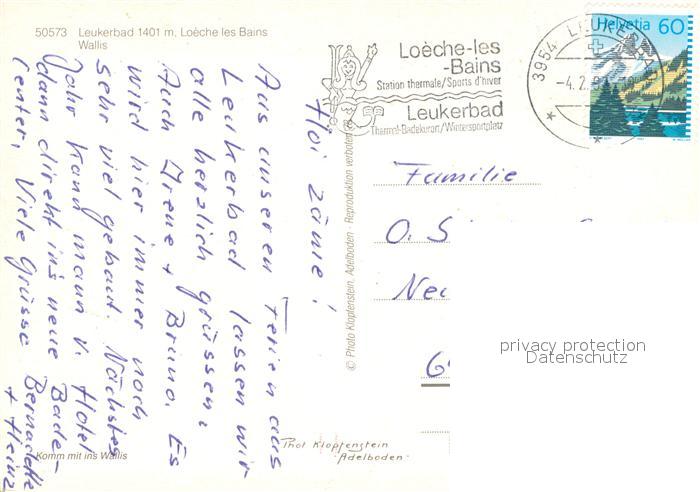 50573 Leukerbad 1401 m, Loèche les Bains
Wallis
Loèche-les
-Bains
Station thermale/Sports d'hiver
Leukerbad
Thermal-Badekurort/Wintersportplatz
3954 LEUKERBAD
-4.2.
Helvetia 60
Hoi zäme!
Aus unseren Ferien aus
Leukerbad lassen wir
alle herzlich grüssen.
Auch Irene + Bruno. Es
wird hier immer noch
sehr viel gebaut. Nächstes
Jahr kann mann v. Hotel
dann direkt in's neue Bade-
center. Viele Grüsse Bernadette
+ Heinz
© Photo Klopfenstein, Adelboden - Reproduktion verboten
Familie
O. S
Neu
6
privacy protection
Datenschutz
Phot Klopfenstein
Adelboden
Komm mit ins Wallis